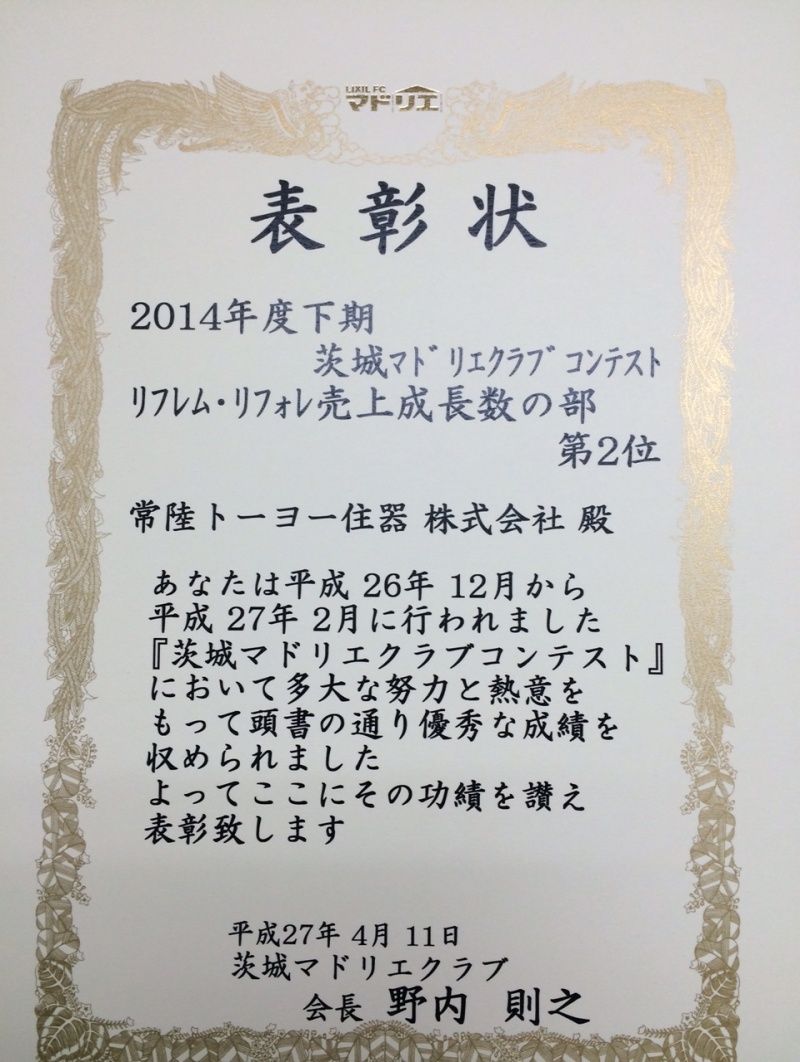 LIXIL FC
マドリエ
表彰状
2014年度下期
茨城マドリエクラブコンテスト
リフレム・リフォレ売上成長数の部
第2位
常陸トーヨー住器 株式会社 殿
あなたは平成 26年 12月から
平成 27年 2月に行われました
『茨城マドリエクラブコンテスト』
において多大な努力と熱意を
もって頭書の通り優秀な成績を
収められました
よってここにその功績を讃え
表彰致します
平成27年 4月 11日
茨城マドリエクラブ
会長 野内 則之